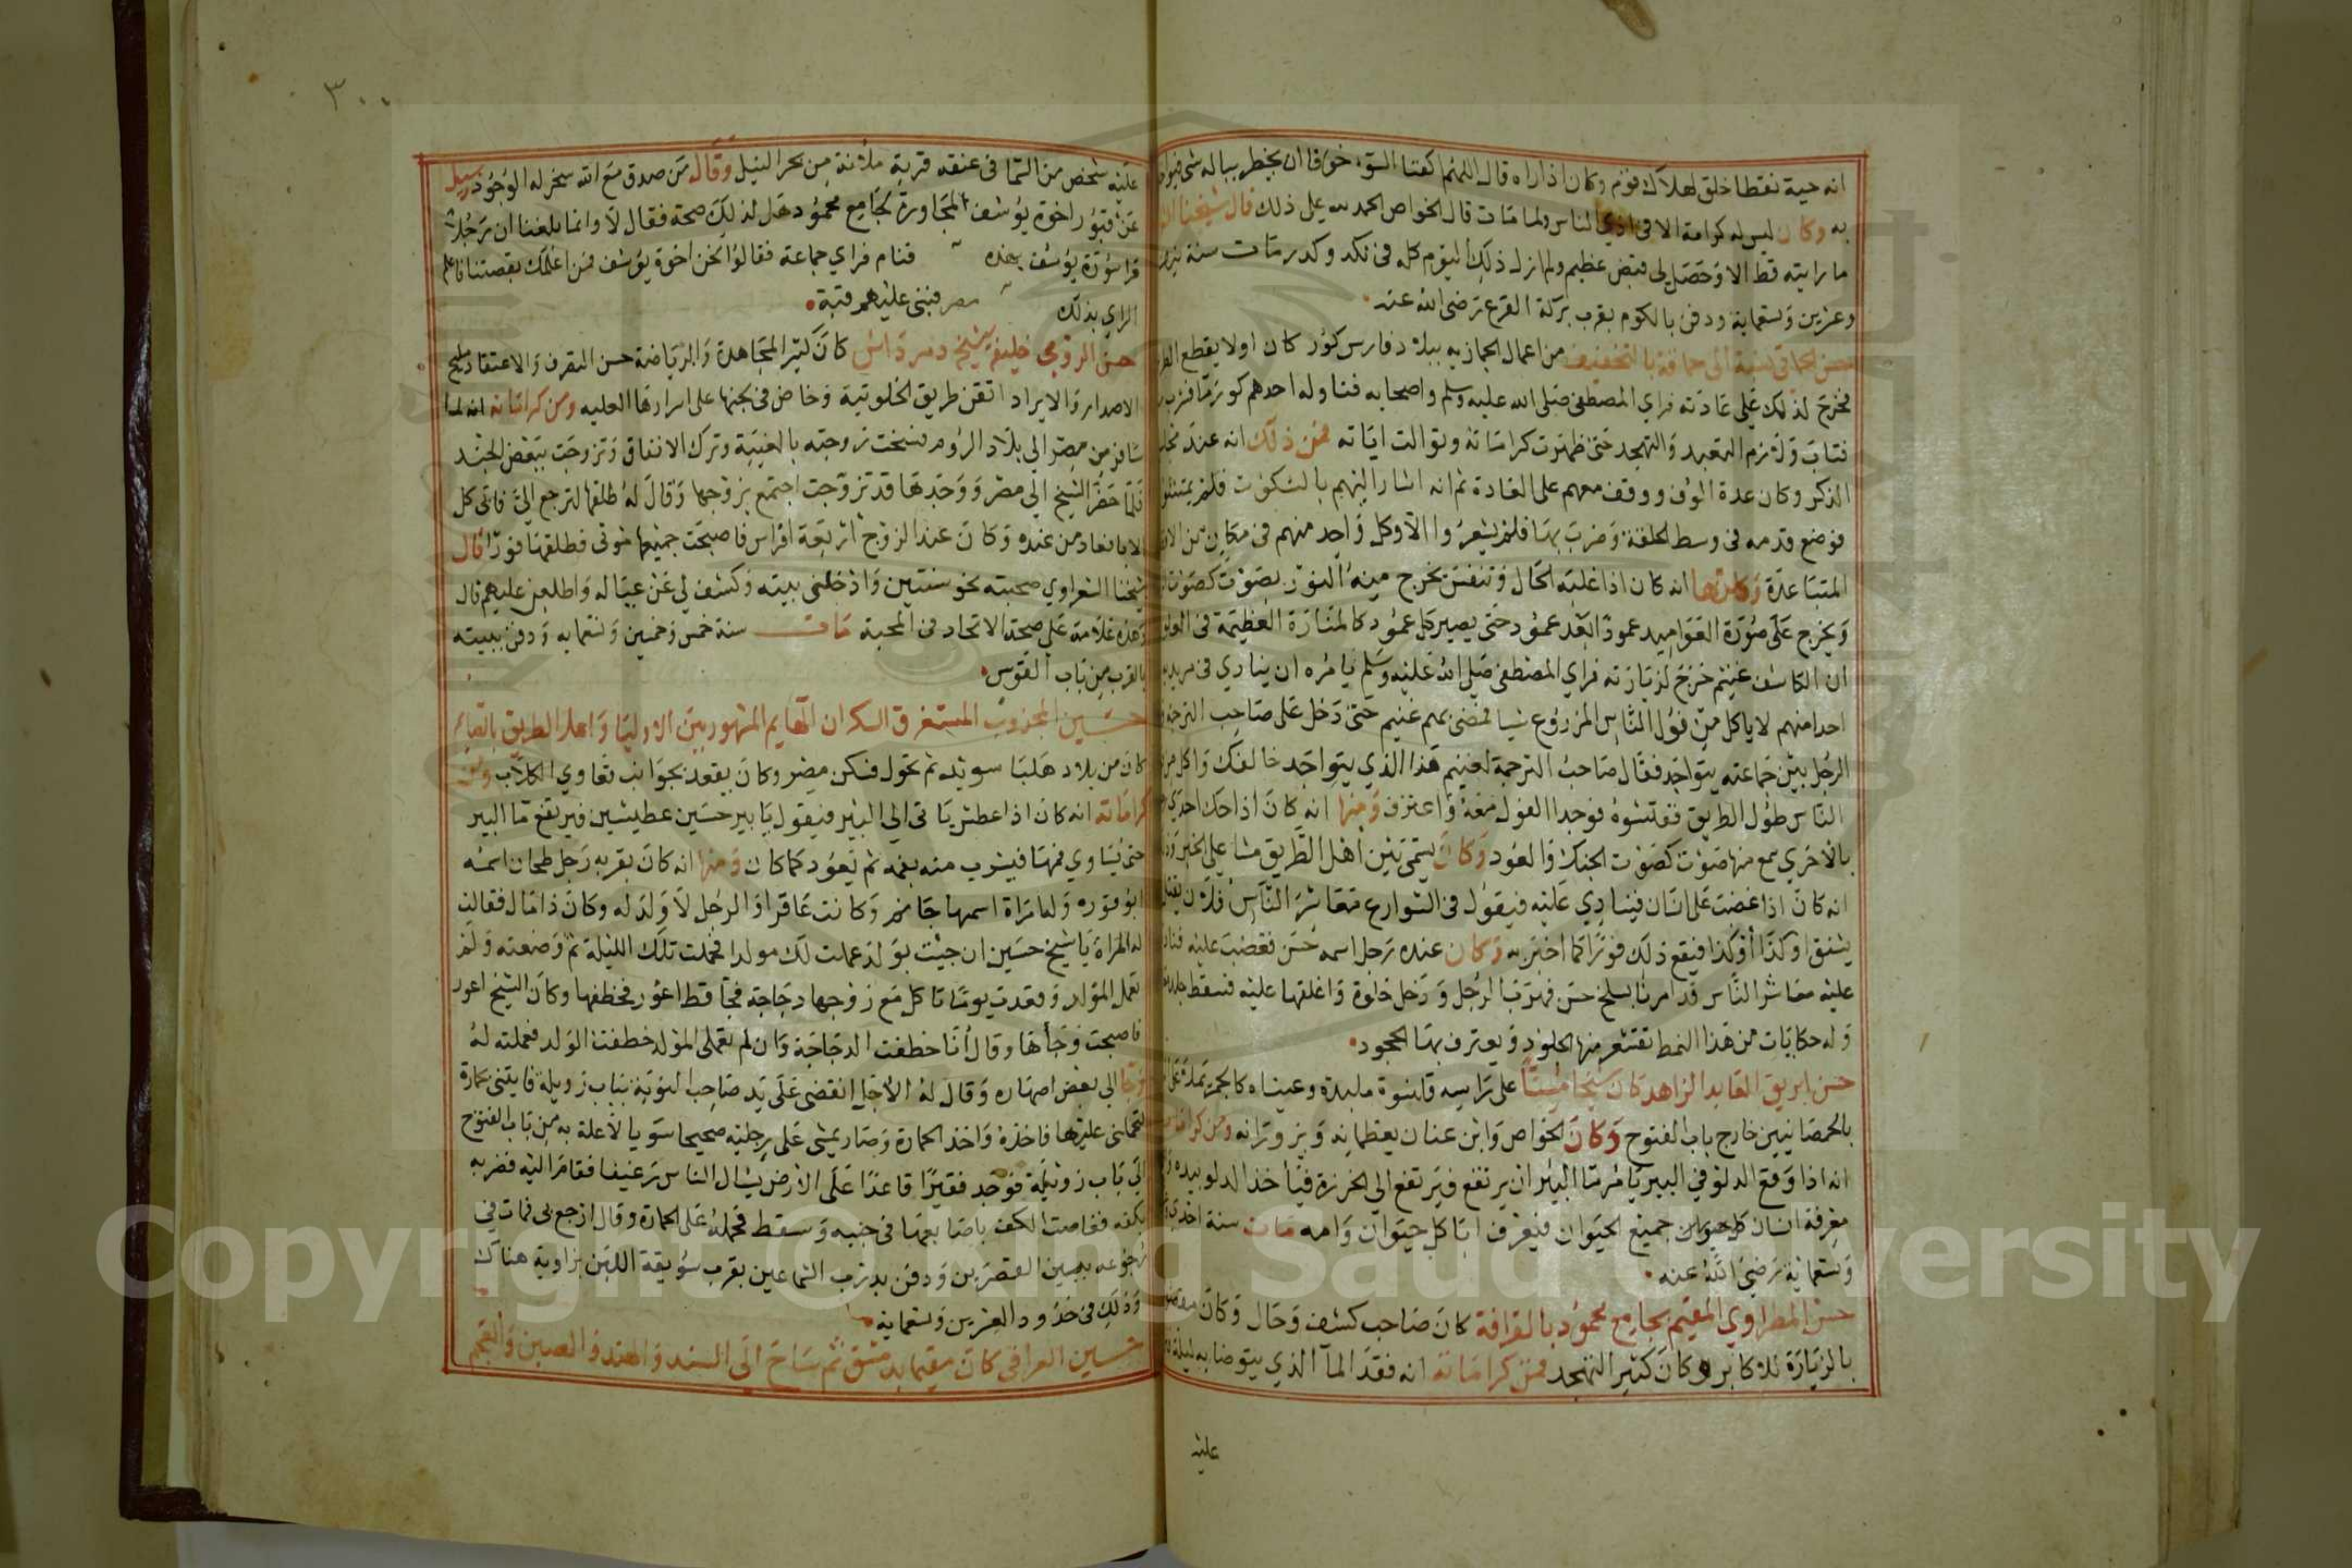 انه حية نقطا خلق لهلاك قوم وكان اذا راه قال اللهم اكفنا السوء خوفا ان يخطر بباله شى فيواخذ
به وكان ليس له كرامة الا فى اذي الناس ولما مات قال الخواص الحمد لله على ذلك قال شيخنا
ما رايته قط الا وحصل لى قبض عظيم ولم ازل ذلك اليوم كله فى نكد وكدر مات سنة نيف
وعشرين وتسعماية ودفن بالكوم بقرب بركة القرع رضى الله عنه
حسن الحماقى نسبة الى حماقة بالتخفيف من اعمال الحجازيه ببلاد فارس كور كان اولا يقطع
فخرج لذلك على عادته فراي المصطفى صلى الله عليه وسلم واصحابه فناوله احدهم كوز ما فشرب
فتاب ولزم التعبد والتهجد حتى ظهرت كراماته وتوالت اياته فمن ذلك انه عند
الذكر وكان عدة الوف ووقف معهم على العادة ثم انه اشار اليهم بالسكوت فلم يمتثلوا
فوضع قدمه فى وسط الحلقة وضرب بها فلم يشعروا الا وكل واحد منهم فى مكان من
المتباعدة وكان انه كان اذا غلبه الحال وتنفس يخرج مينه النور بصوت كصوت
ويخرج على صورة العواميد عمود ابعد عمود حتى يصير كل عمود كالمنارة العظيمة فى
ان الكاشف غنيم خرج لزيارته فراي المصطفى صلى الله عليه وسلم يامره ان ينادي فى مريديه
احدا منهم لا ياكل من فول الناس المزروع شيا فمضى بهم غنيم حتى دخل على صاحب الترجمة
الرجل بين جماعته يتواجد فقال صاحب الترجمة لغنيم هذا الذي يتواجد خالفك واكل من
الناس طول الطريق ففتشوه فوجدا الفول معه واعترف ومنها انه كان اذا حك احدي
بالاخري سمع منها صوت كصوت الجنك والعود وكان يتمى بين اهل الطريق
انه كان اذا غضب على انسان فينادي عليه فيقول فى الشوارع معاشر الناس فلان
يشنق او كذا اوكذا فيقع ذلك فورا كما اخبر به وكان عنده رجل اسمه حسن فغضب عليه فنادي
عليه معاشر الناس قد امرنا بسلخ حسن فهرب الرجل ودخل خلوة واغلقها عليه فسقط جلده
وله حكايات من هذا النمط تقشعر منها الجلود ويعترف بها الجحود
حسن ابريق العابد الزاهد كان شيخا على راسه قلنسوة ملبدة وعيناه كالجمر
بالحمصانيين خارج باب الفتوح وكان الخواص وابن عنان يعظمانه ويزورانه ومن كراماته
انه اذا وقع الدلو في البير يامر ما البير ان يرتفع فيرتفع الى الخرزة فياخذ الدلو بيده
معرفة انسان كل حيوان جميع الحيوان فيعرف ابا كل حيوان وامه مات سنة احدي
وتسعماية رضى الله عنه
حسن المطراوي المقيم بجامع محمود بالقرافة كان صاحب كشف وحال وكان
بالزيارة للاكابر وكان كثير التهجد فمن كراماته انه فقد الما الذي يتوضا به ليلة
عليه
٣٠٠
عليه شخص من السما فى عنقه قربة ملانة من بحر النيل وقال من صدق مع الله سخر له الوجود سيل
عن قبور اخوة يوسف المجاورة لجامع محمود هل لذلك صحة فقال لا وانما بلغنا ان رجلا
قرا سورة يوسف بهذه فنام فراي جماعة فقالوا نحن اخوة يوسف فمن اعلمك بقصتنا فاعلم
الراي بذلك مصر فبنى عليهم قبة
حسن الرومى خليفه شيخ دمرداش كان كثير المجاهدة والرياضة حسن التصرف والاعتقاد مليح
الاصدار والايراد اتقن طريق الخلوتية وخاض فى بحثها على اسرارها العليه ومن كراماته انه لما
سافر من مصر الى بلاد الروم فسخت زوجته بالغيبة وترك الانفاق وتزوجت ببعض الجند
فلما حضر الشيخ الى مصر ووجدها قد تزوجت اجتمع بزوجها وقال له طلقها لترجع الى فاتى كل
الابا فعاد من عنده وكان عند الزوج اربعة افراس فاصبحت جميعها موتى فطلقها فورا قال
شيخنا الشعراوي صحبته نحو سنتين وادخلنى بيته وكشف لي عن عياله واطلعنى عليهم قال
وهذه علامة على صحة الاتحاد فى المحبة مات سنة خمس وخمسين وتسعمايه ودفن ببيته
بالقرب من باب القوس
حسين المجذوب المستغرق السكران الهايم المشهور بين الاوليا واهل الطريق بالقايم
كان من بلاد هلبا سويد ثم تحول فسكن مصر وكان يقعد بجوانب تعاوي الكلاب ومن
كراماته انه كان اذا عطش ياتى الى البير فيقول يا بير حسين عطيشين فيرتفع ما البير
حتى يساوي فمها فيشرب منه بفمه ثم يعود كما كان ومنها انه كان بقربه رجل طحان اسمه
ابو قوره وله امراة اسمها جانم وكانت عاقرا والرجل لا ولد له وكان ذا مال فقالت
له المراة يا شيخ حسين ان جيت بولد عملت لك مولدا فحملت تلك الليلة ثم وضعته ولم
تعمل المولد وقعدت يوما تاكل مع زوجها دجاجة فجا قط اعور فخطفها وكان الشيخ اعور
فاصبحت وجاها وقال انا خطفت الدجاجة وان لم تعملى المولد خطفت الولد فعملته له
الى بعض اصهاره وقال له الاجل انقضى على يد صاحب النوبة بباب زويلة فايتنى بحمارة
لتحملنى عليها فاخذه واخذ الحمارة وصار يمشى على رجليه صحيحا سويا لا علة به من باب الفتوح
الى باب زويلة فوجد فقيرا قاعدا على الارض يسال الناس رغيفا فقام اليه فضربه
بكفه فغاصت الكف باصابعها فى جنبه وسقط فحمله على الحمارة وقال ارجع بى فمات فى
رجوعه ببين القصرين ودفن بدرب الشماعين بقرب سويقة اللبن بزاوية هناك
وذلك فى حدود العشرين وتسعماية
حسين العراقى كان مقيما بدمشق ثم ساح الى السند والهند والصين والعجم
Copyright © King Saud University